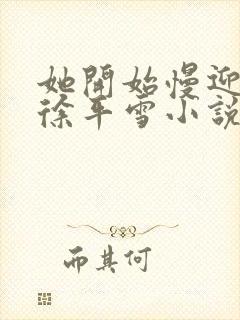 她開始慢迎
徐平雪小説
而其何